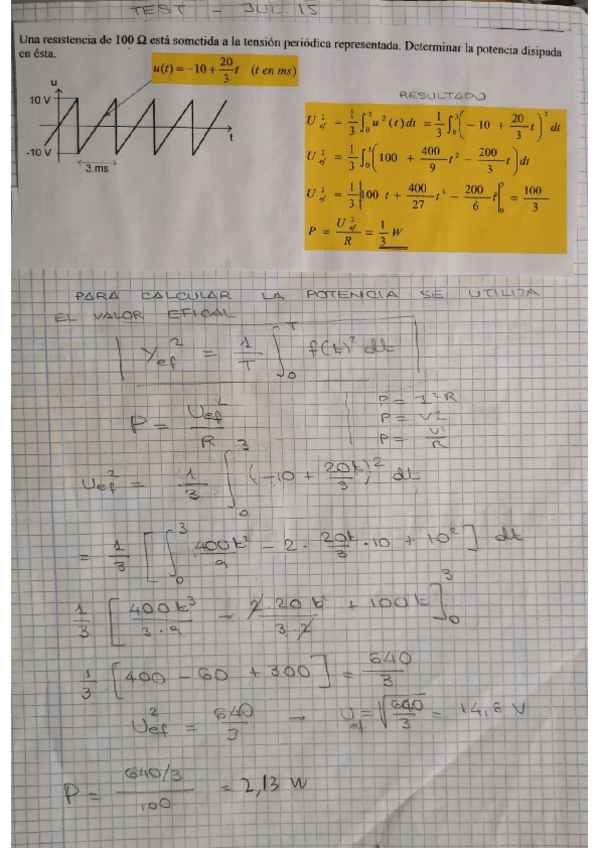 TEST - JUL 15
Una resistencia de 100 Ω está sometida a la tensión periódica representada. Determinar la potencia disipada
en ésta.
u(t) = -10 + 20/3 t (t en ms)
u
10 V
-10 V
t
3 ms
RESULTADO
U²ef = 1/3 ∫₀³ u²(t)dt = 1/3 ∫₀³ (-10 + 20/3 t)² dt
U²ef = 1/3 ∫₀³ (100 + 400/9 t² - 200/3 t) dt
U²ef = 1/3 |100 t + 400/27 t³ - 200/6 t|₀³ = 100/3
P = U²ef/R = 1/3 W
PARA CALCULAR LA POTENCIA SE UTILIZA
EL VALOR EFICAL
Yef² = 1/T ∫₀ᵀ f(t)² dt
P = Uef²/R
P = I²R
P =
P = V²/R
Uef² = 1/3 ∫₀³ (-10 + 20t/3)² dt
= 1/3 [∫₀³ 400t²/9 - 2 · 20t/3 · 10 + 10²] dt
1/3 [400t³/3·9 - 2·20t²/3·2 + 100t]₀³
1/3 [400 - 60 + 300] = 640/3
Uef² = 640/3 → Uef = √640/3 = 14,6 V
P = 640/3/100 = 2,13 W